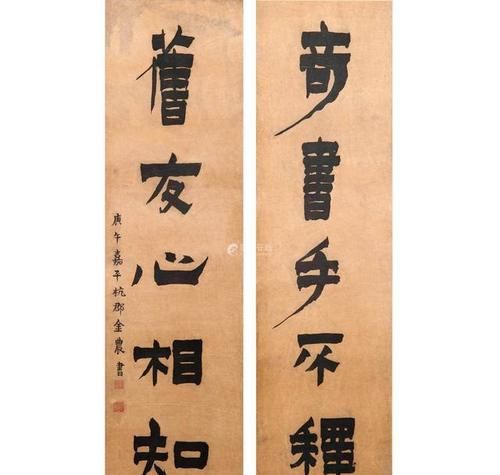 奇書手不釋
舊友心相知
庚午嘉平杭郡金農書